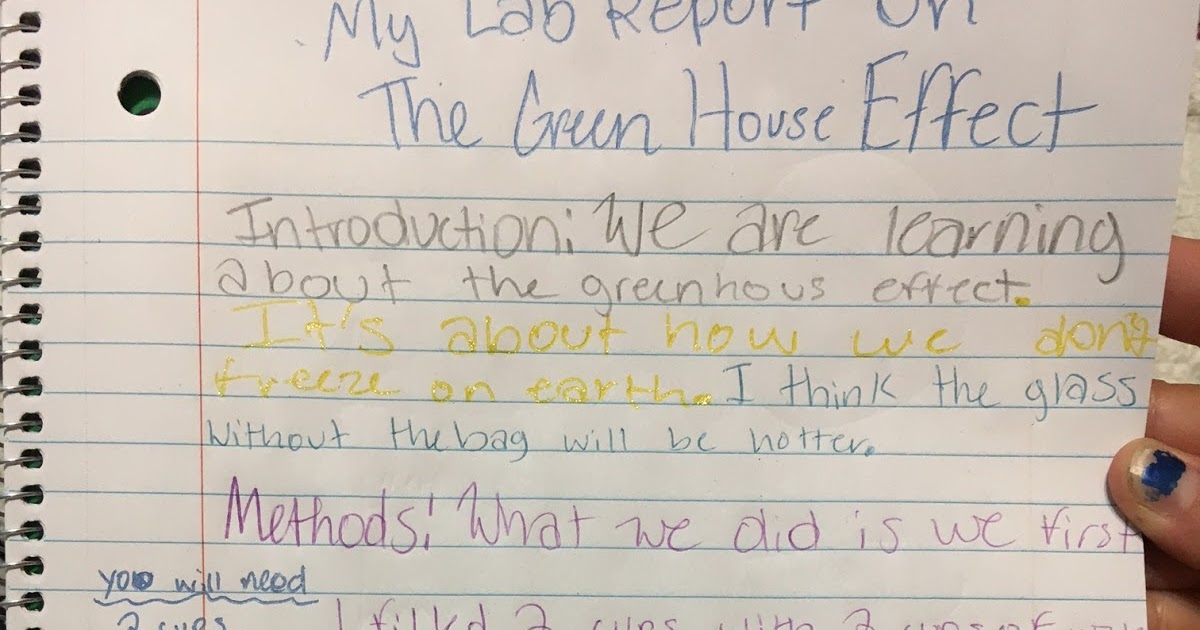 My Lab Report On
The Green House Effect
Introduction: We are learning
about the greenhous effect.
It's about how we don't
freeze on earth. I think the glass
without the bag will be hotter.
Methods: What we did is we first
you will need
2 cups
I filled 2 cups with 2 cups of